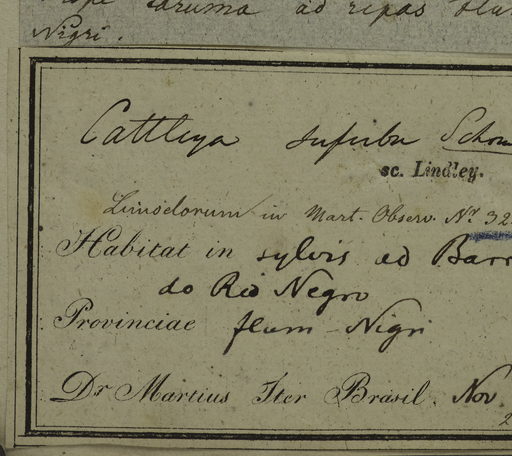 prope Taruma ad ripas flu
Nigri.
Cattleya superba Schom
sc. Lindley.
Limodorum in Mart. Observ. Nr. 32
Habitat in sylvis ad Barr
do Rio Negro
Provinciae flum-Nigri
Dr Martius Iter Brasil. Nov.
2